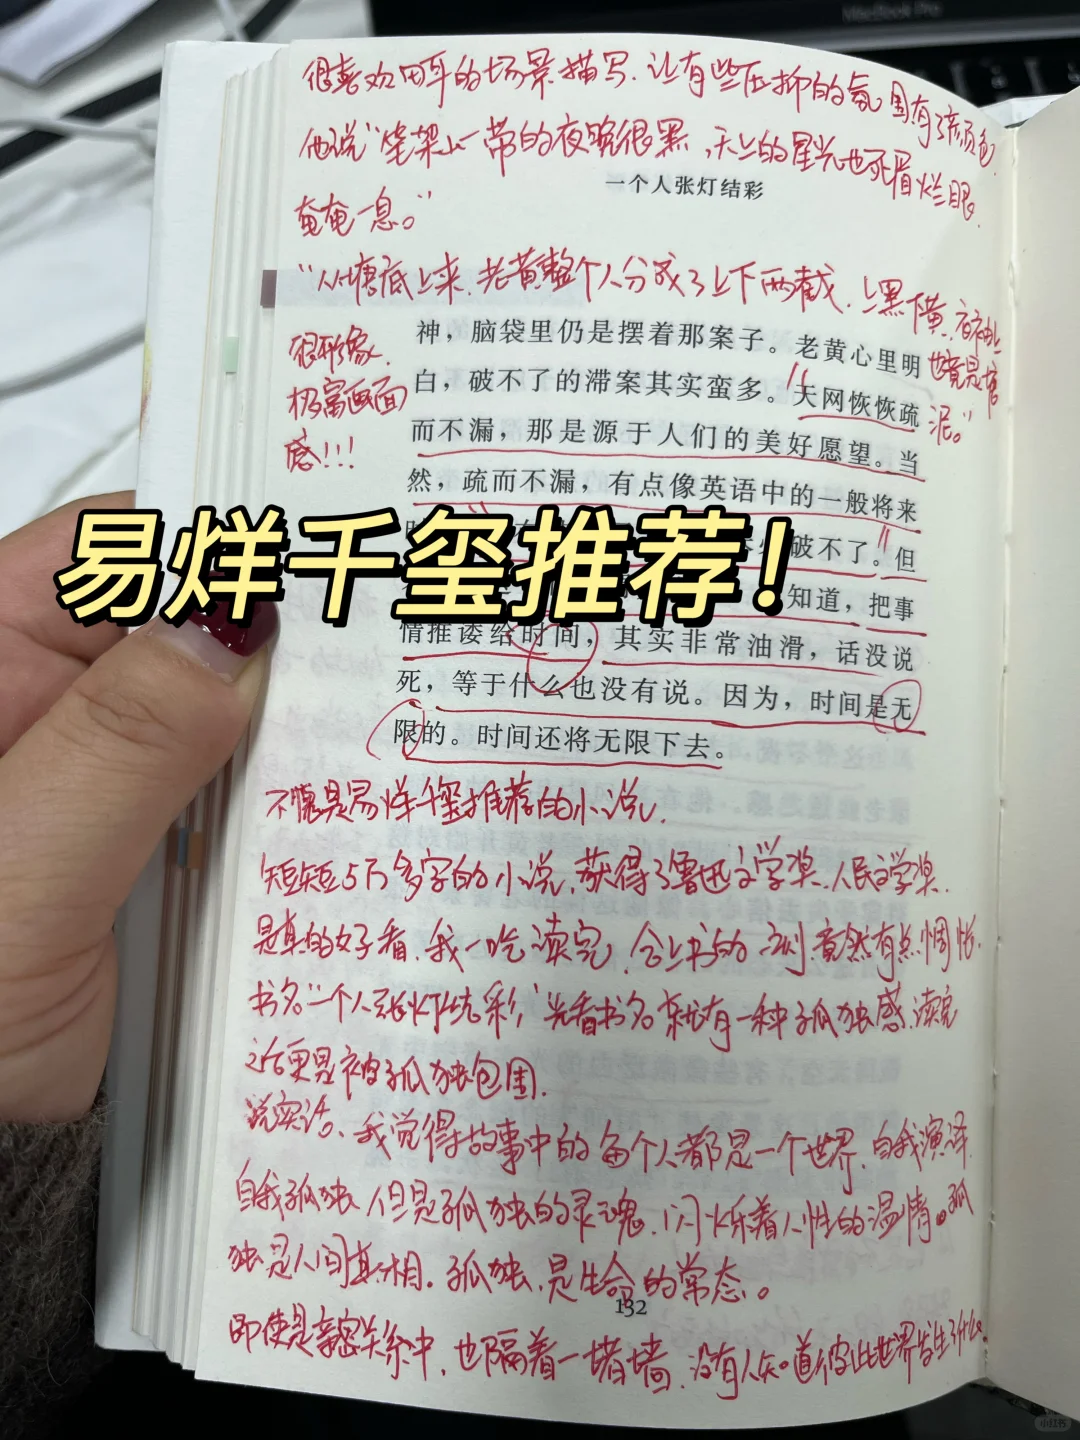 MacBook Pro
很喜欢田耳的场景描写.让有些压抑的氛围有了亮色.
他说"笔架山一带的夜晚很黑,天上的星光也死眉烂眼
一个人张灯结彩
奄奄一息。"
"从塘底上来.老黄整个人分成了上下两截.上黑下黄.
也竟是塘泥。"
很形象.
极富画面
感!!!
神，脑袋里仍是摆着那案子。老黄心里明
白，破不了的滞案其实蛮多。天网恢恢疏
而不漏，那是源于人们的美好愿望。当
然，疏而不漏，有点像英语中的一般将来
破不了。但
易烊千玺推荐!
知道，把事
情推诿给时间，其实非常油滑，话没说
死，等于什么也没有说。因为，时间是无
限的。时间还将无限下去。
不愧是易烊千玺推荐的小说.
短短5万多字的小说,获得了鲁迅文学奖.人民文学奖.
是真的好看.我一口气读完,合上书的一刻竟然有点惆怅.
书名"一个人张灯结彩"光看书名就有一种孤独感.读完
之后更是被孤独包围.
说实话、我觉得故事中的每个人都是一个世界.自我演译
自我孤独.但是孤独的灵魂,闪烁着人性的温情。孤
独是人间真相.孤独.是生命的常态。
132
即使是亲密关系中,也隔着一堵墙.没有人知道彼此世界发生了什么.
小红书